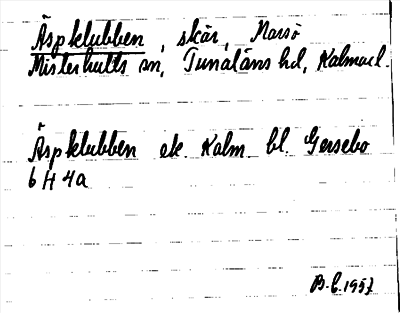 Äspklubben, skär, Marsö
Misterhults sn, Tunaläns hd, Kalmar l.
Äspklubben ek. Kalm. bl. Gersebo
6 H 4a
B.C. 1957